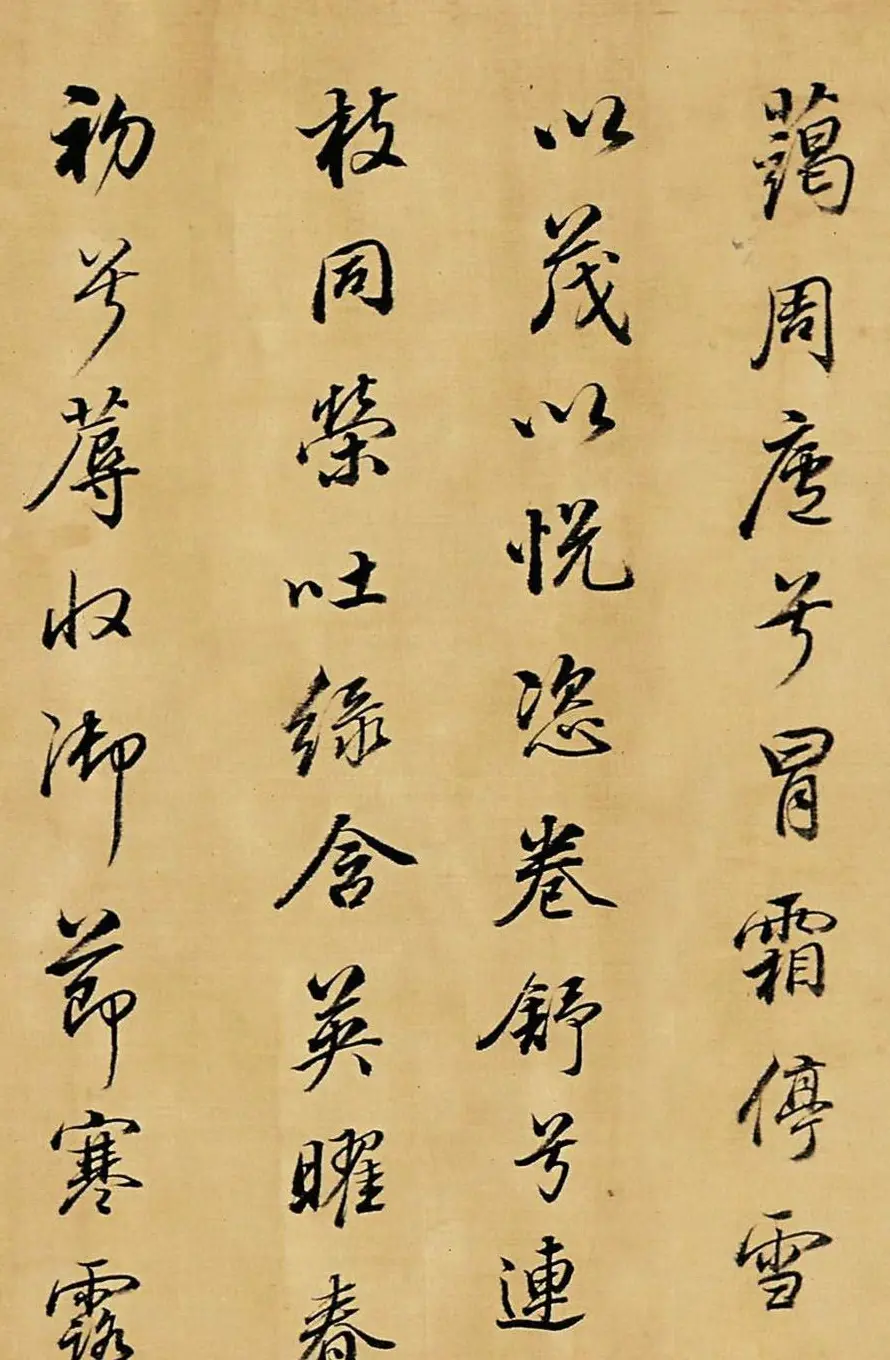 藹周廬兮冒霜停雪
以茂以悅恣卷舒兮連
枝同榮吐綠含英曜春
初兮蓐收御節寒露